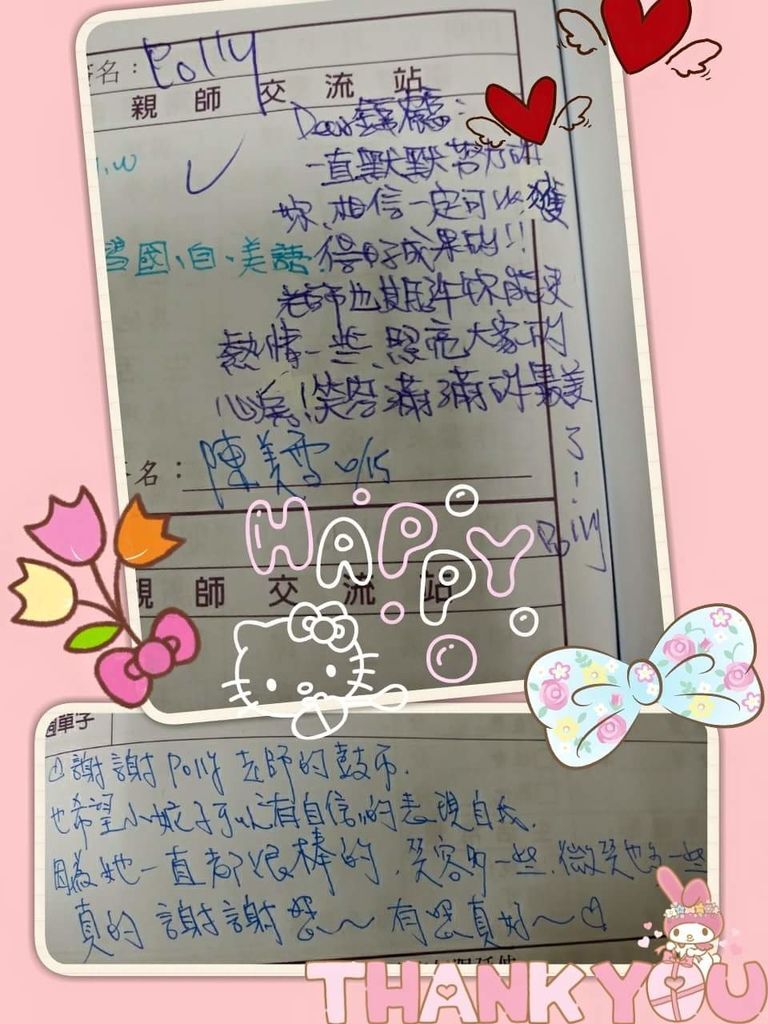 名：Polly
親師交流站
Dear
一直默默努力的
妳，相信一定可以獲
國、自、美語
得好成果的!!
老師也期許妳能更
熱情一些，照亮大家的
心房！笑容滿滿的最美
了！
Polly
名：陳美雪 10/15
HAPPY
親師交流站
週單子
謝謝Polly老師的鼓勵.
也希望小妮子可以有自信的表現自我.
因為她一直都很棒的，笑容多一些，微笑也多一些
真的謝謝您～～有您真好～
THANK YOU